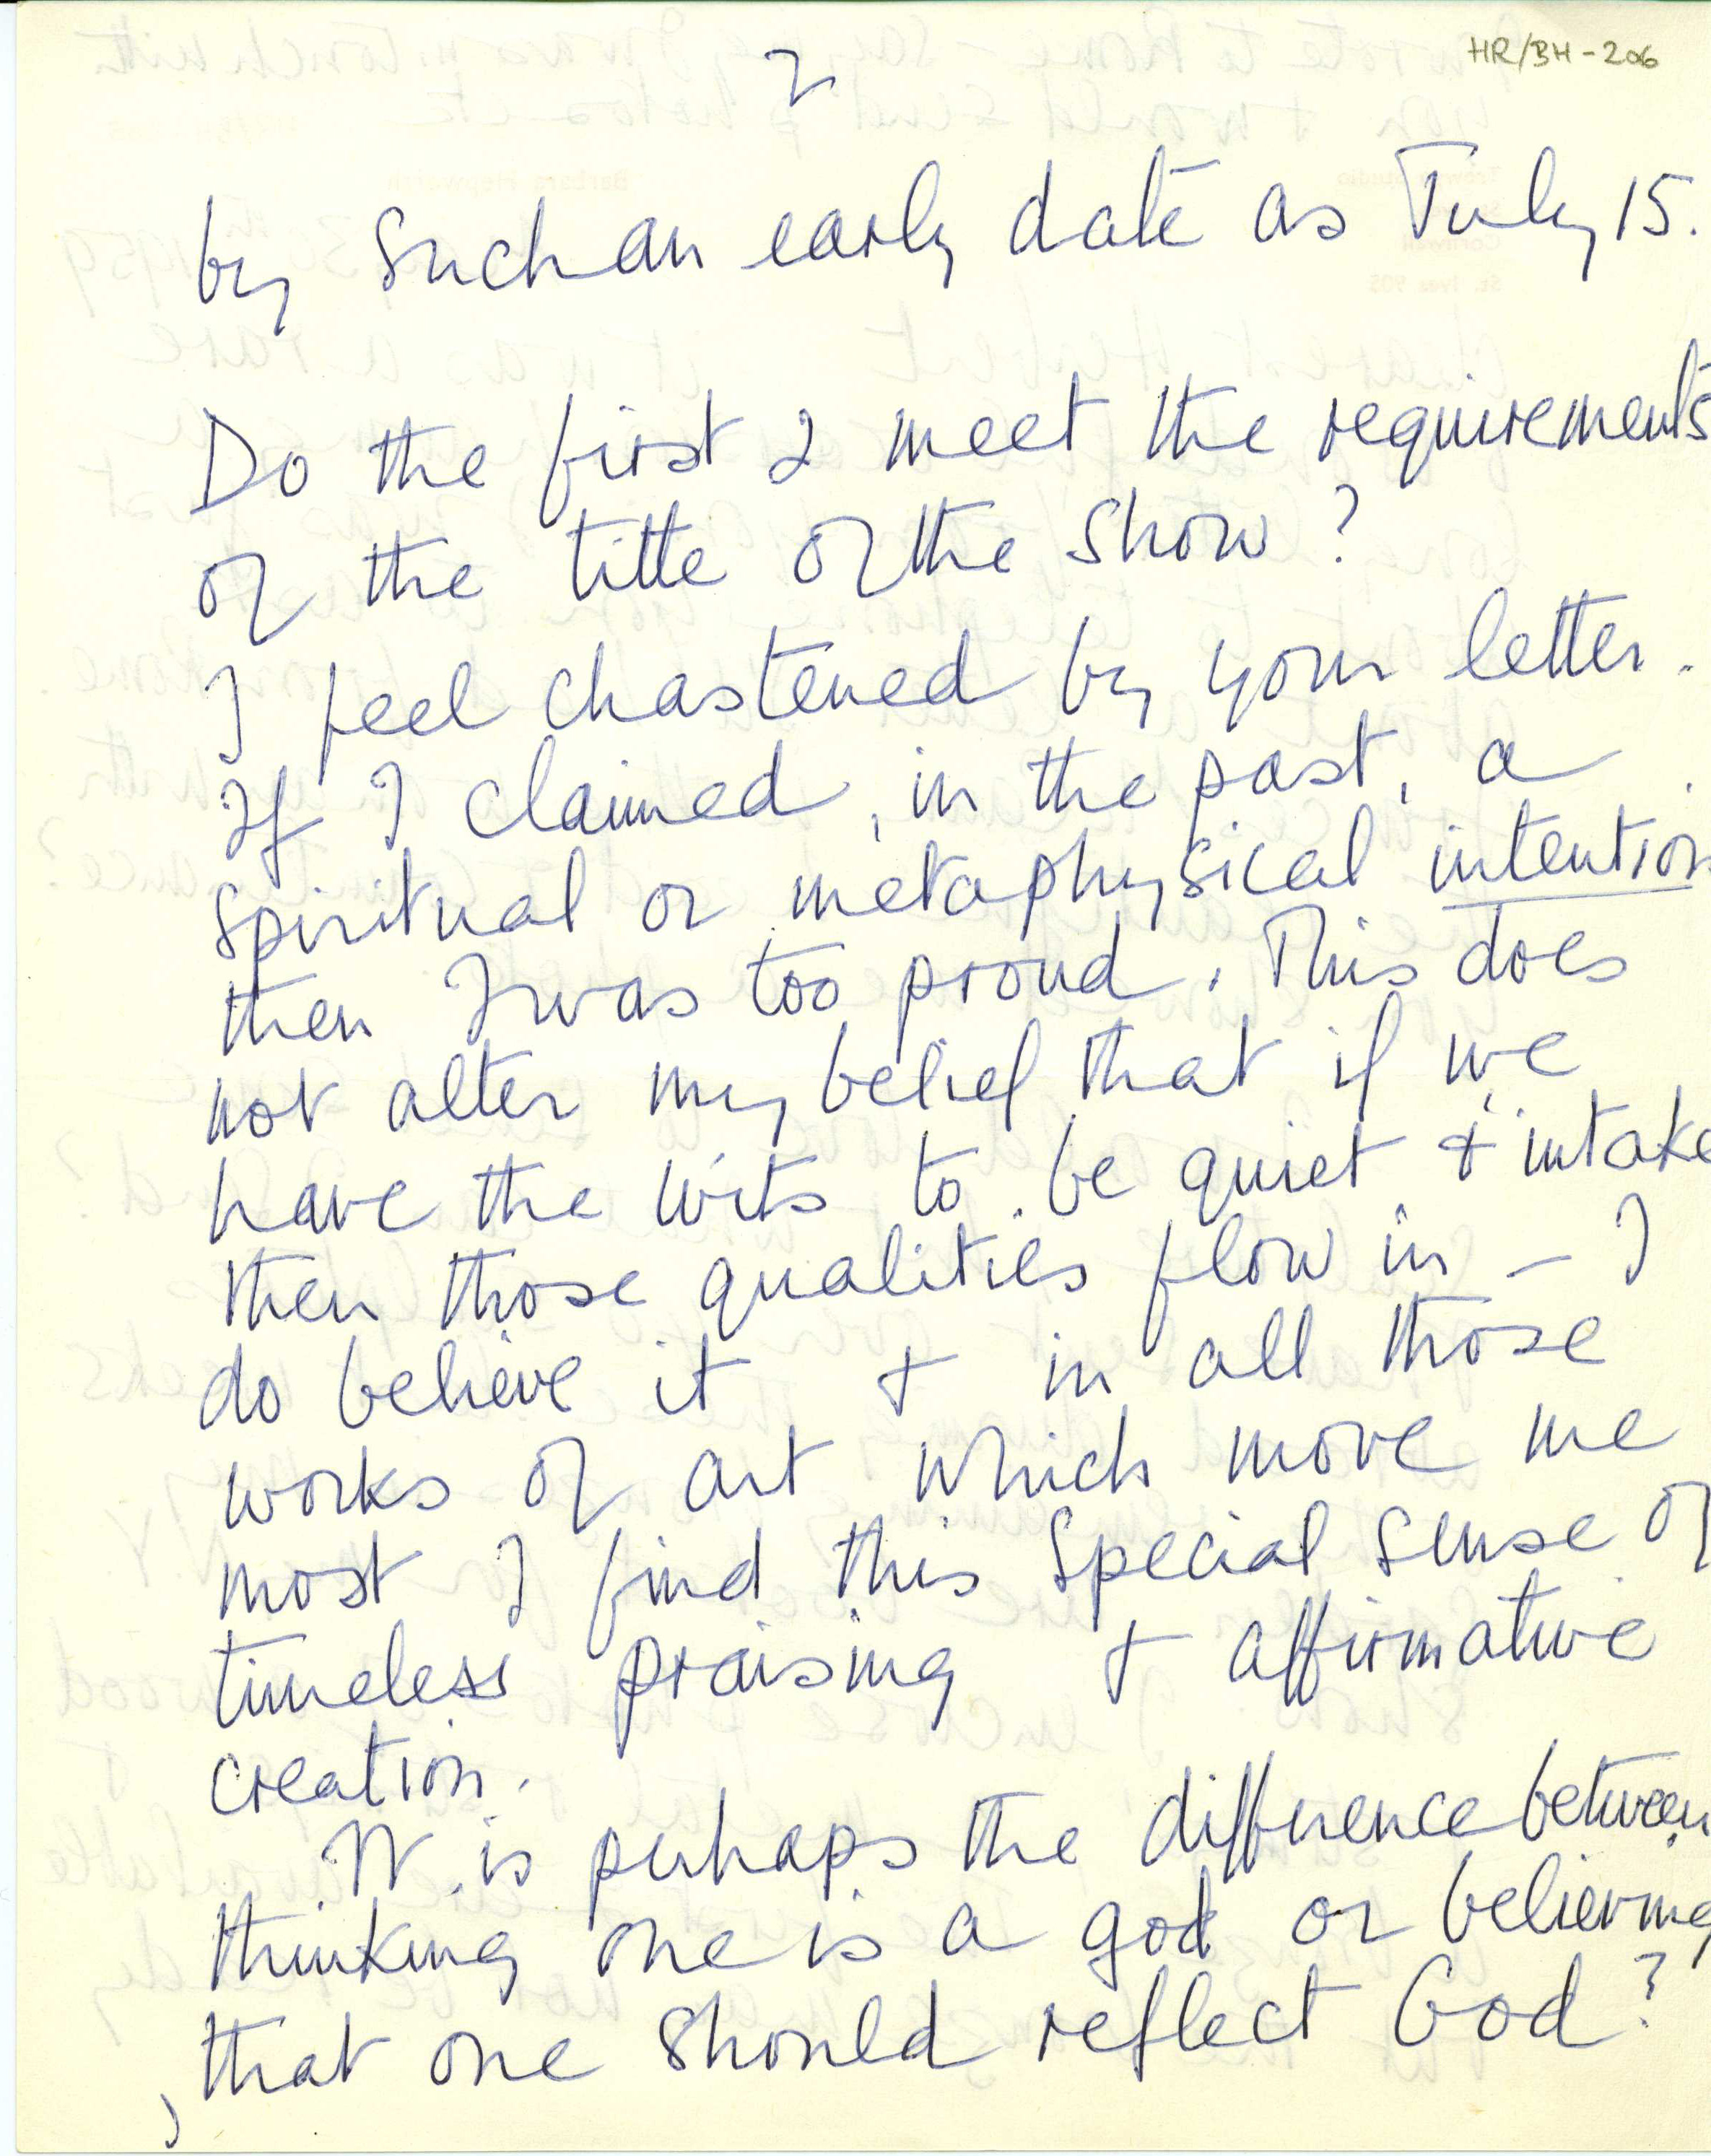 HR/BH-206
2
by such an early date as July 15.
Do the first 2 meet the requirements
of the title of the show?
I feel chastened by your letter.
If I claimed, in the past, a
spiritual or metaphysical intention
then I was too proud. This does
not alter my belief that if we
have the wits to be quiet & intake
then those qualities flow in – I
do believe it & in all those
works of art which move me
most I find this special sense of
timeless praising & affirmative
creation.
It is perhaps the difference between
thinking one is a god or believing
that one should reflect God?